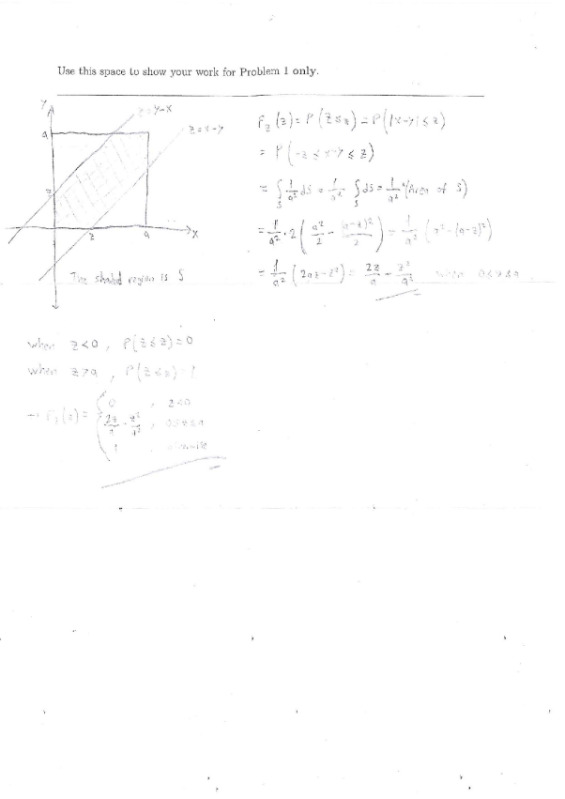 Use this space to show your work for Problem 1 only.
y
z=y-x
z=x-y
a
z
z
a
x
The shaded region is S
F_Z(z) = P(Z≤z) = P(|x-y|≤z)
= P(-z ≤ x-y ≤ z)
= ∫_S 1/a² ds = 1/a² ∫_S ds = 1/a² (Area of S)
= 1/a² · 2(a²/2 - (a-z)²/2) = 1/a² (a²-(a-z)²)
= 1/a² (2az-z²) = 2z/a - z²/a² when 0≤z≤a
when z<0, P(Z≤z)=0
when z>a, P(Z≤z)=1
→ F_Z(z) = { 0 , z<0
2z/a - z²/a² , 0≤z≤a
1 , otherwise